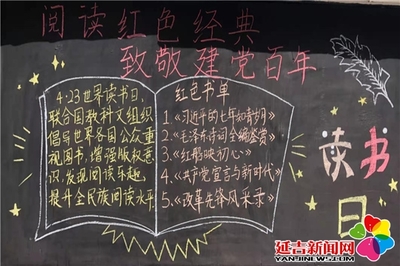 阅读红色经典
致敬建党百年
4·23世界读书日,
联合国教科文组织
倡导世界各国公众重
视图书,增强版权意
识,发现阅读乐趣,
提升全民族阅读水平
红色书单
1.《习近平的七年知青岁月》
2.《毛泽东诗词全编鉴赏》
3.《红船映初心》
4.《共产党宣言与新时代》
5.《改革先锋风采录》
读书
日
延吉新闻网
WWW.YANJINEWS.COM